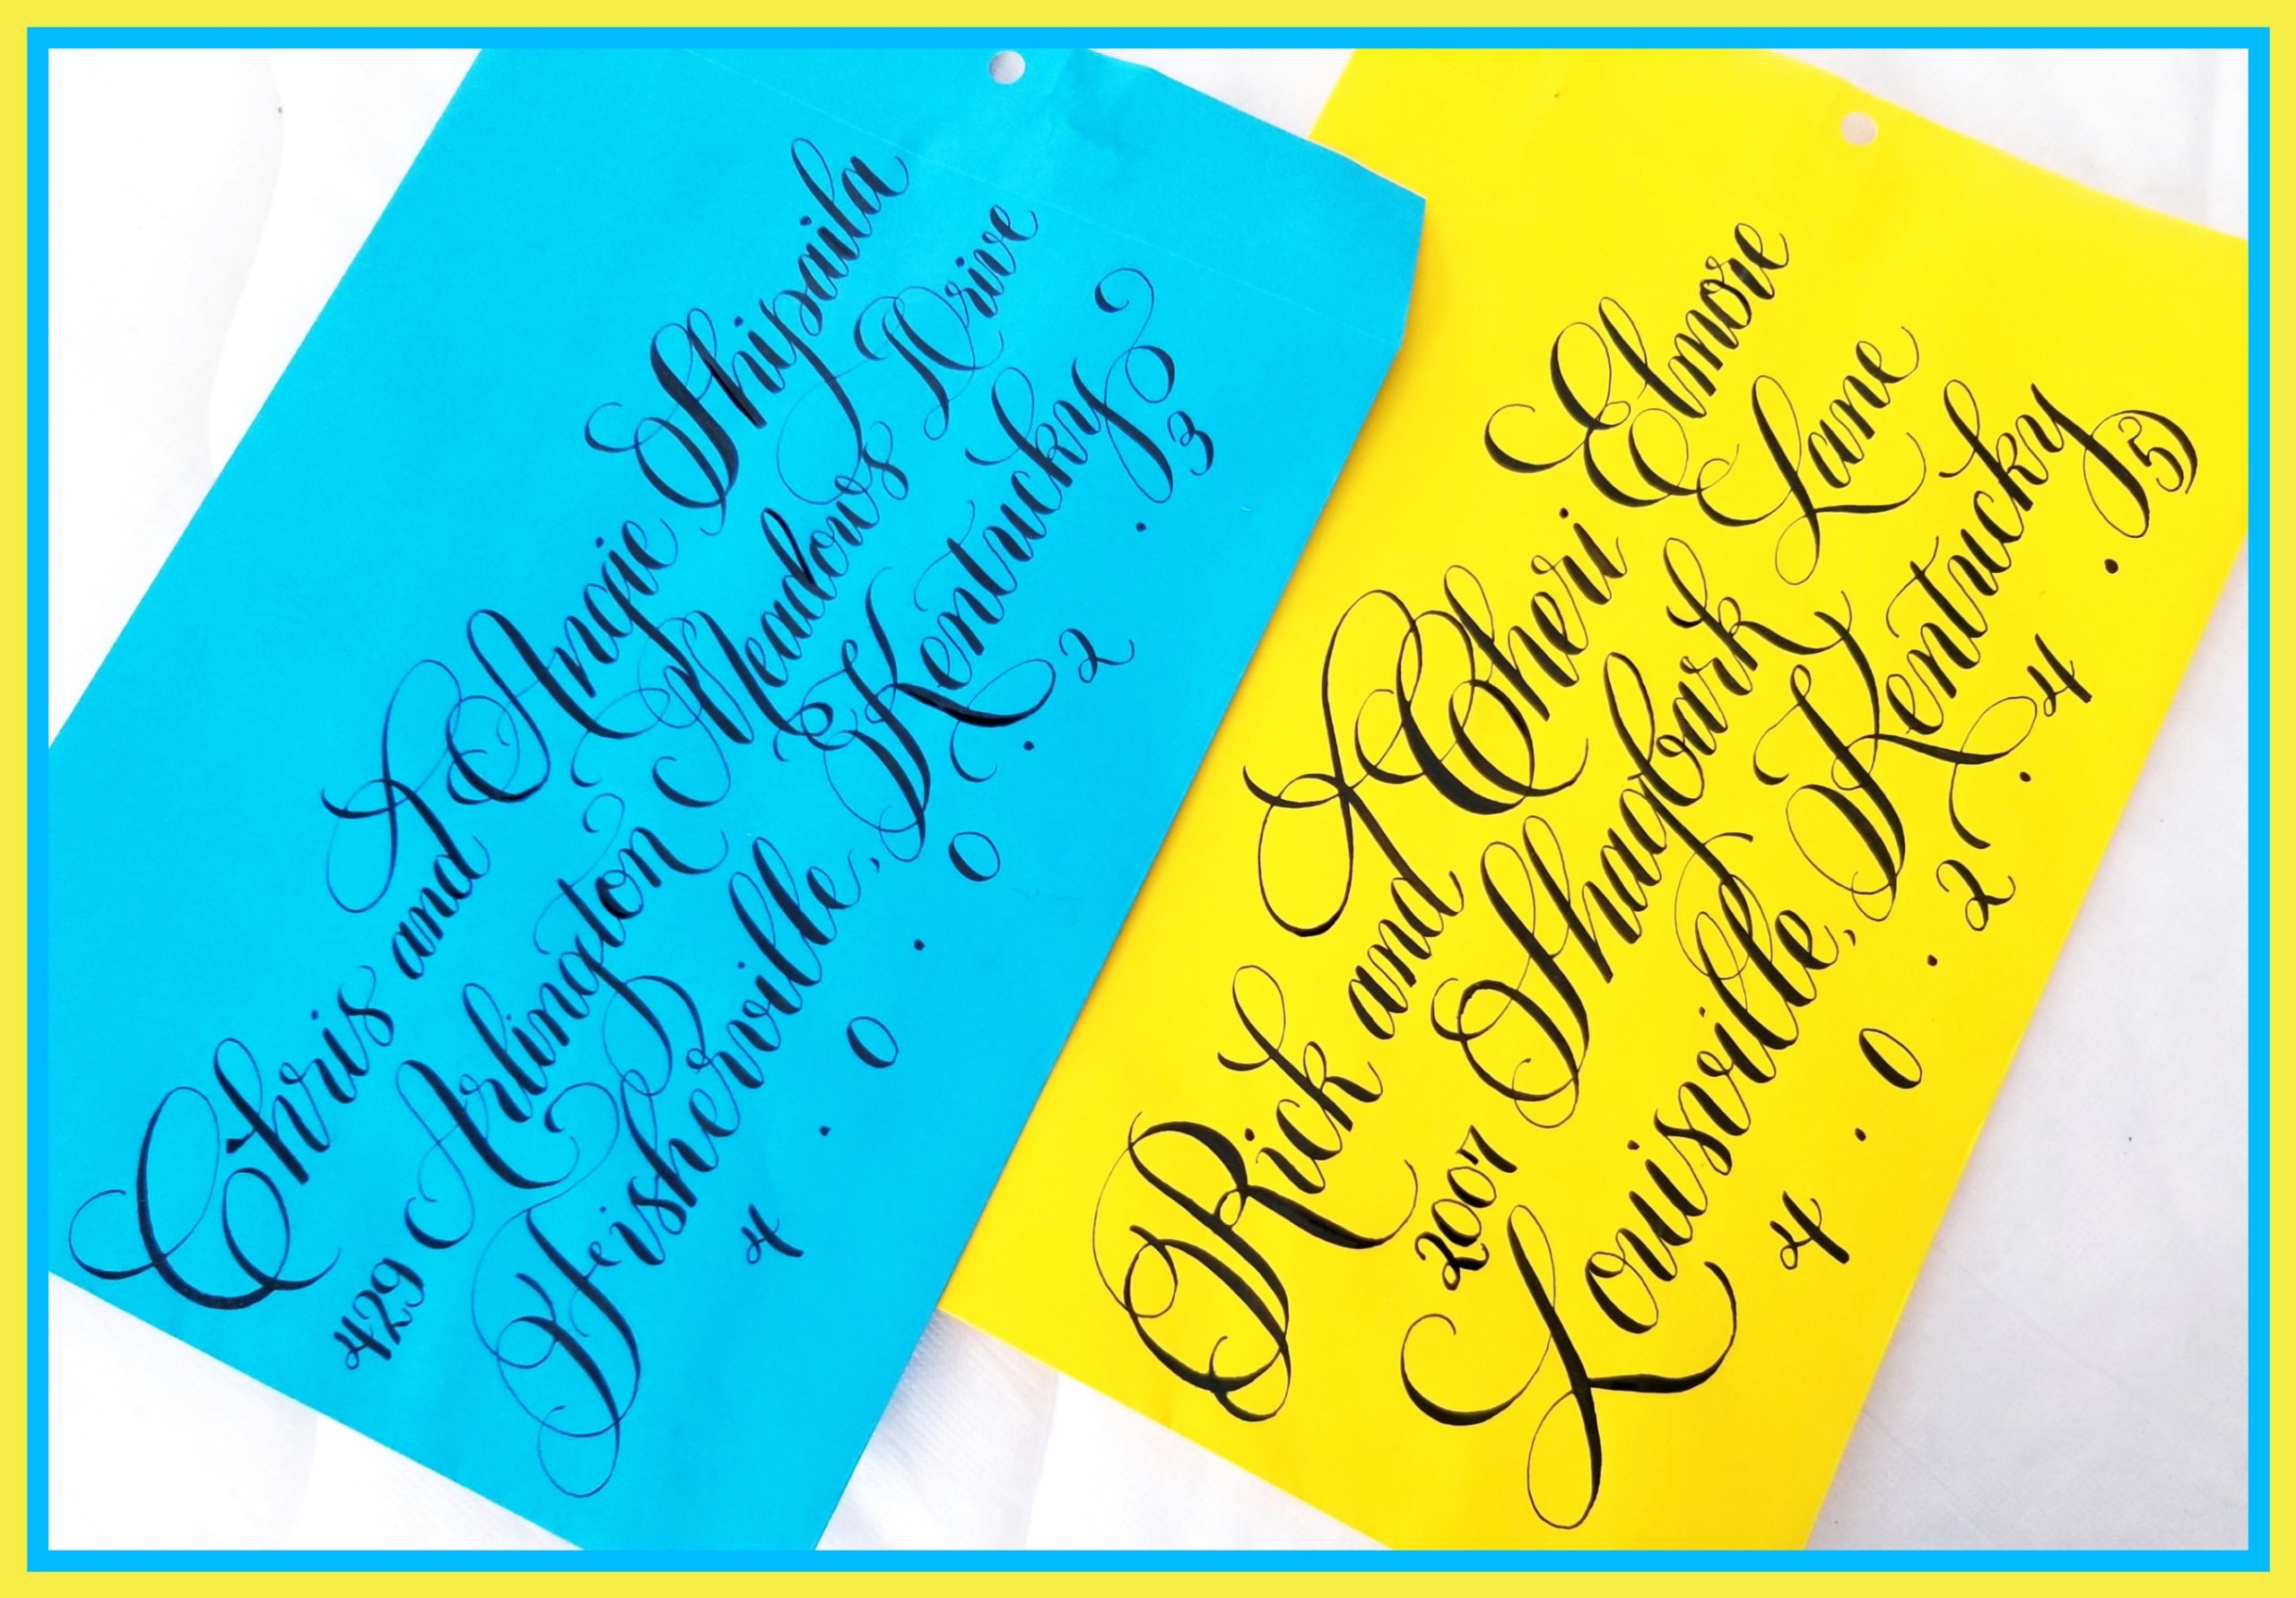 Chris and Angie Shipaila
429 Arlington Meadows Drive
Fisherville, Kentucky
4 . 0 . 0 . 2 . 3
Rick and Cheri Elmore
2007 Shagbark Lane
Louisville, Kentucky
4 . 0 . 2 . 4 . 5